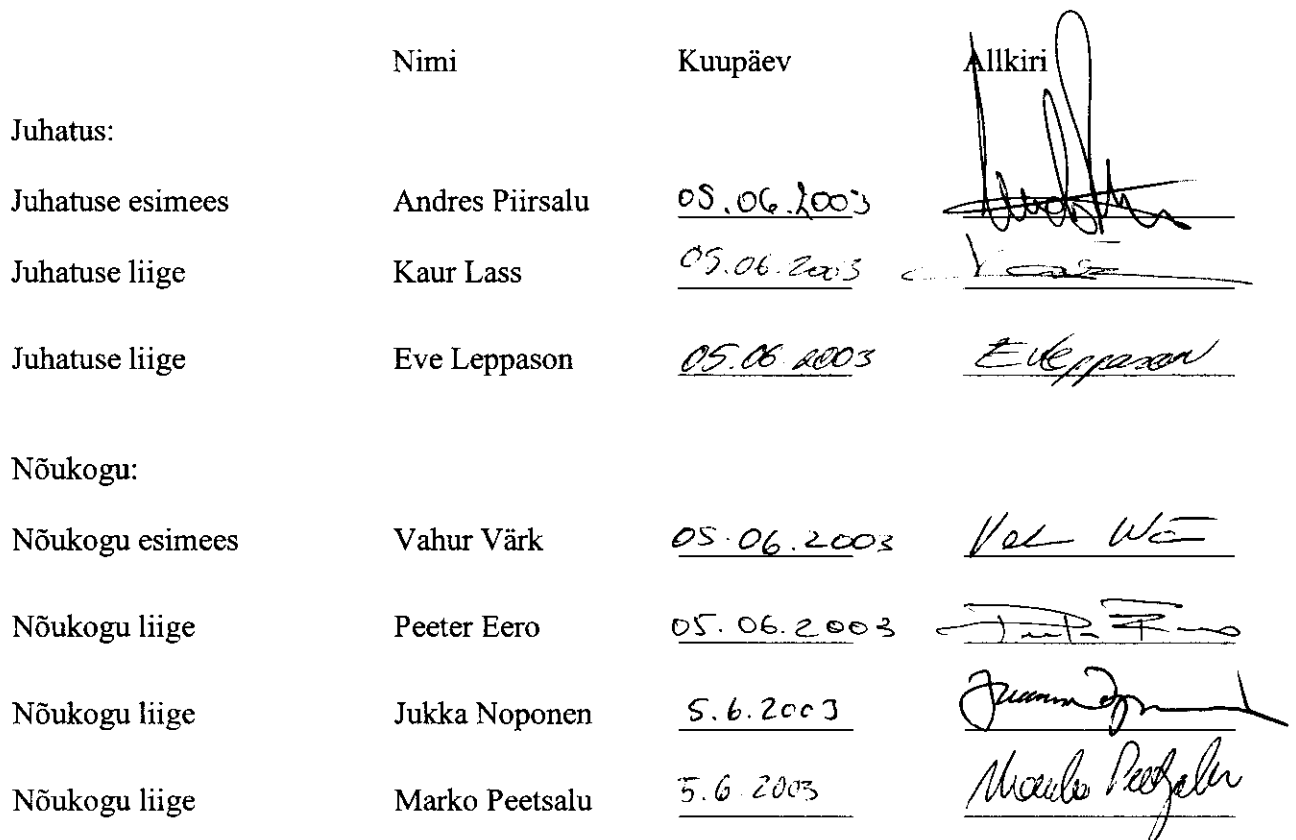 Nimi Kuupäev Allkiri
Juhatus:
Juhatuse esimees Andres Piirsalu 05.06.2003
Juhatuse liige Kaur Lass 05.06.2003
Juhatuse liige Eve Leppason 05.06.2003 E Leppason
Nõukogu:
Nõukogu esimees Vahur Värk 05.06.2003
Nõukogu liige Peeter Eero 05.06.2003
Nõukogu liige Jukka Noponen 5.6.2003
Nõukogu liige Marko Peetsalu 5.6.2003 Marko Peetsalu